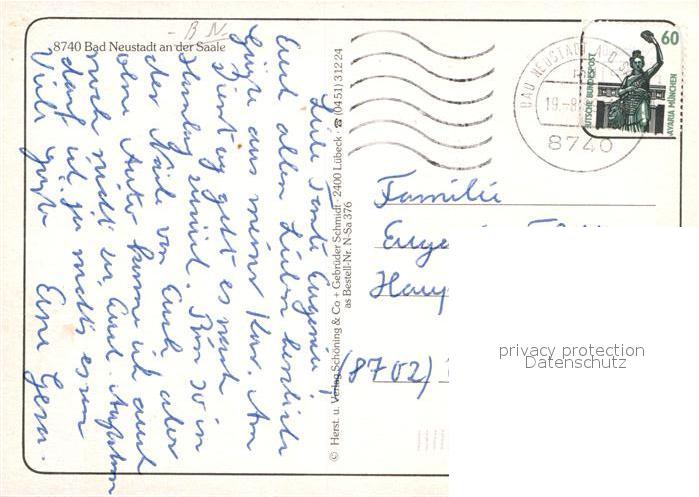 8740 Bad Neustadt an der Saale
- B N -
Liebe Tante Eugenie,
Euch allen Lieben herzliche
Grüße aus meiner Kur. Am
Dienstag geht es nach
Hamburg zurück. Bin so in
der Nähe von Euch aber
ohne Auto komme ich auch
noch nicht zu Euch.
darf ich ja nichts essen
Viele Grüße Eure
© Herst. u. Verlag Schöning & Co + Gebrüder Schmidt · 2400 Lübeck · ☎ (04 51) 3 12 24
as Bestell-Nr. N-Sa 376
BAD NEUSTADT A D S
19.-8
8740
60
DEUTSCHE BUNDESPOST
BAVARIA MÜNCHEN
Familie
(8702)
privacy protection
Datenschutz